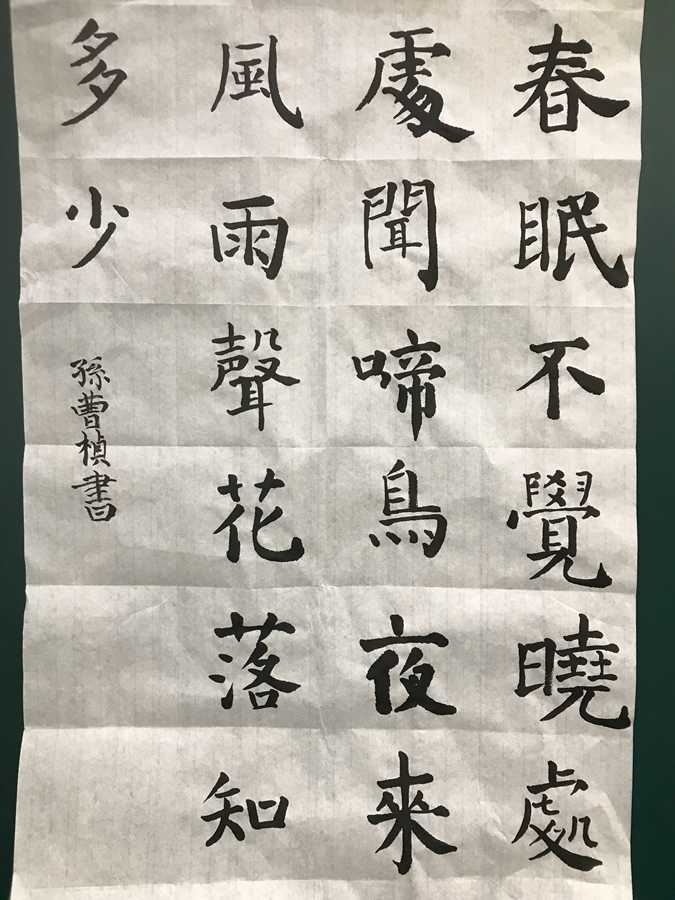 春眠不覺曉處
處聞啼鳥夜來
風雨聲花落知
多少
孫曹楨書